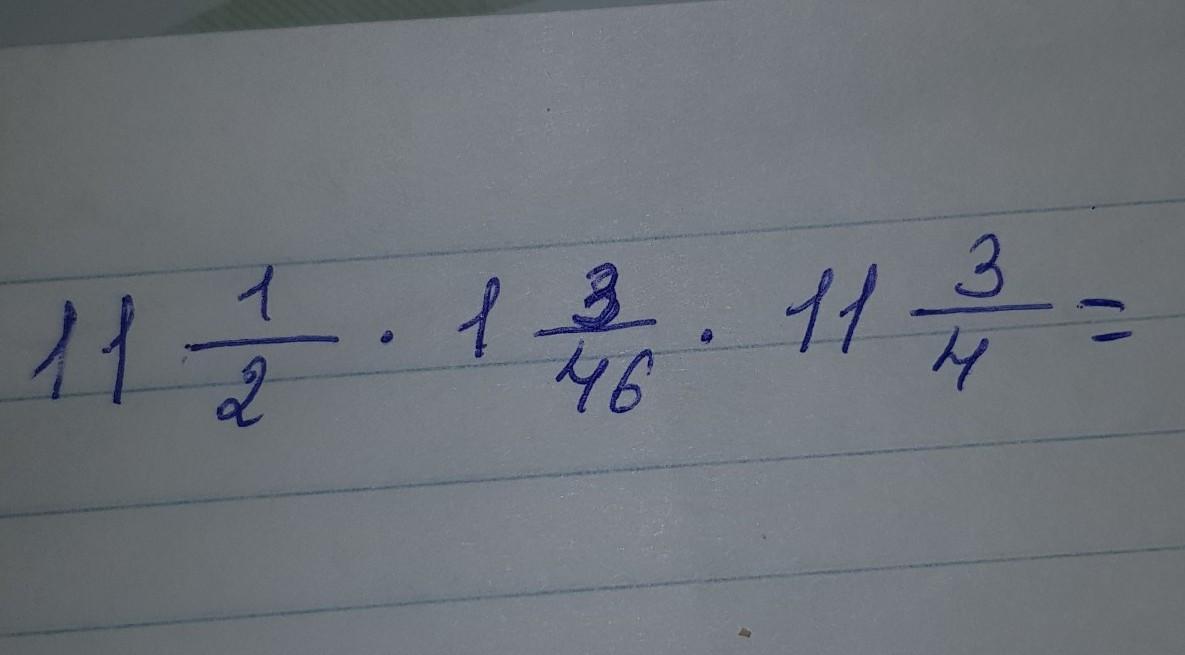 11 1/2 · 1 3/46 · 11 3/4 =